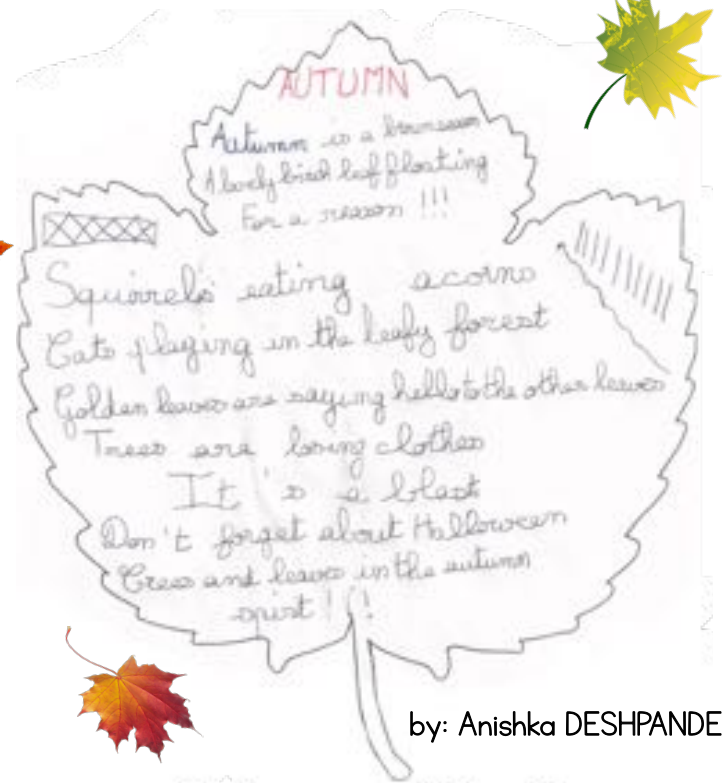 AUTUMN
Autumn is a
A lovely birch leaf floating
For a reason !!!
Squirrels eating acorns
Cats playing in the leafy forest
Golden leaves are saying hello to the other leaves
Trees are losing clothes
It's a blast
Don't forget about Halloween
Trees and leaves in the autumn
spirit !!!
by: Anishka DESHPANDE